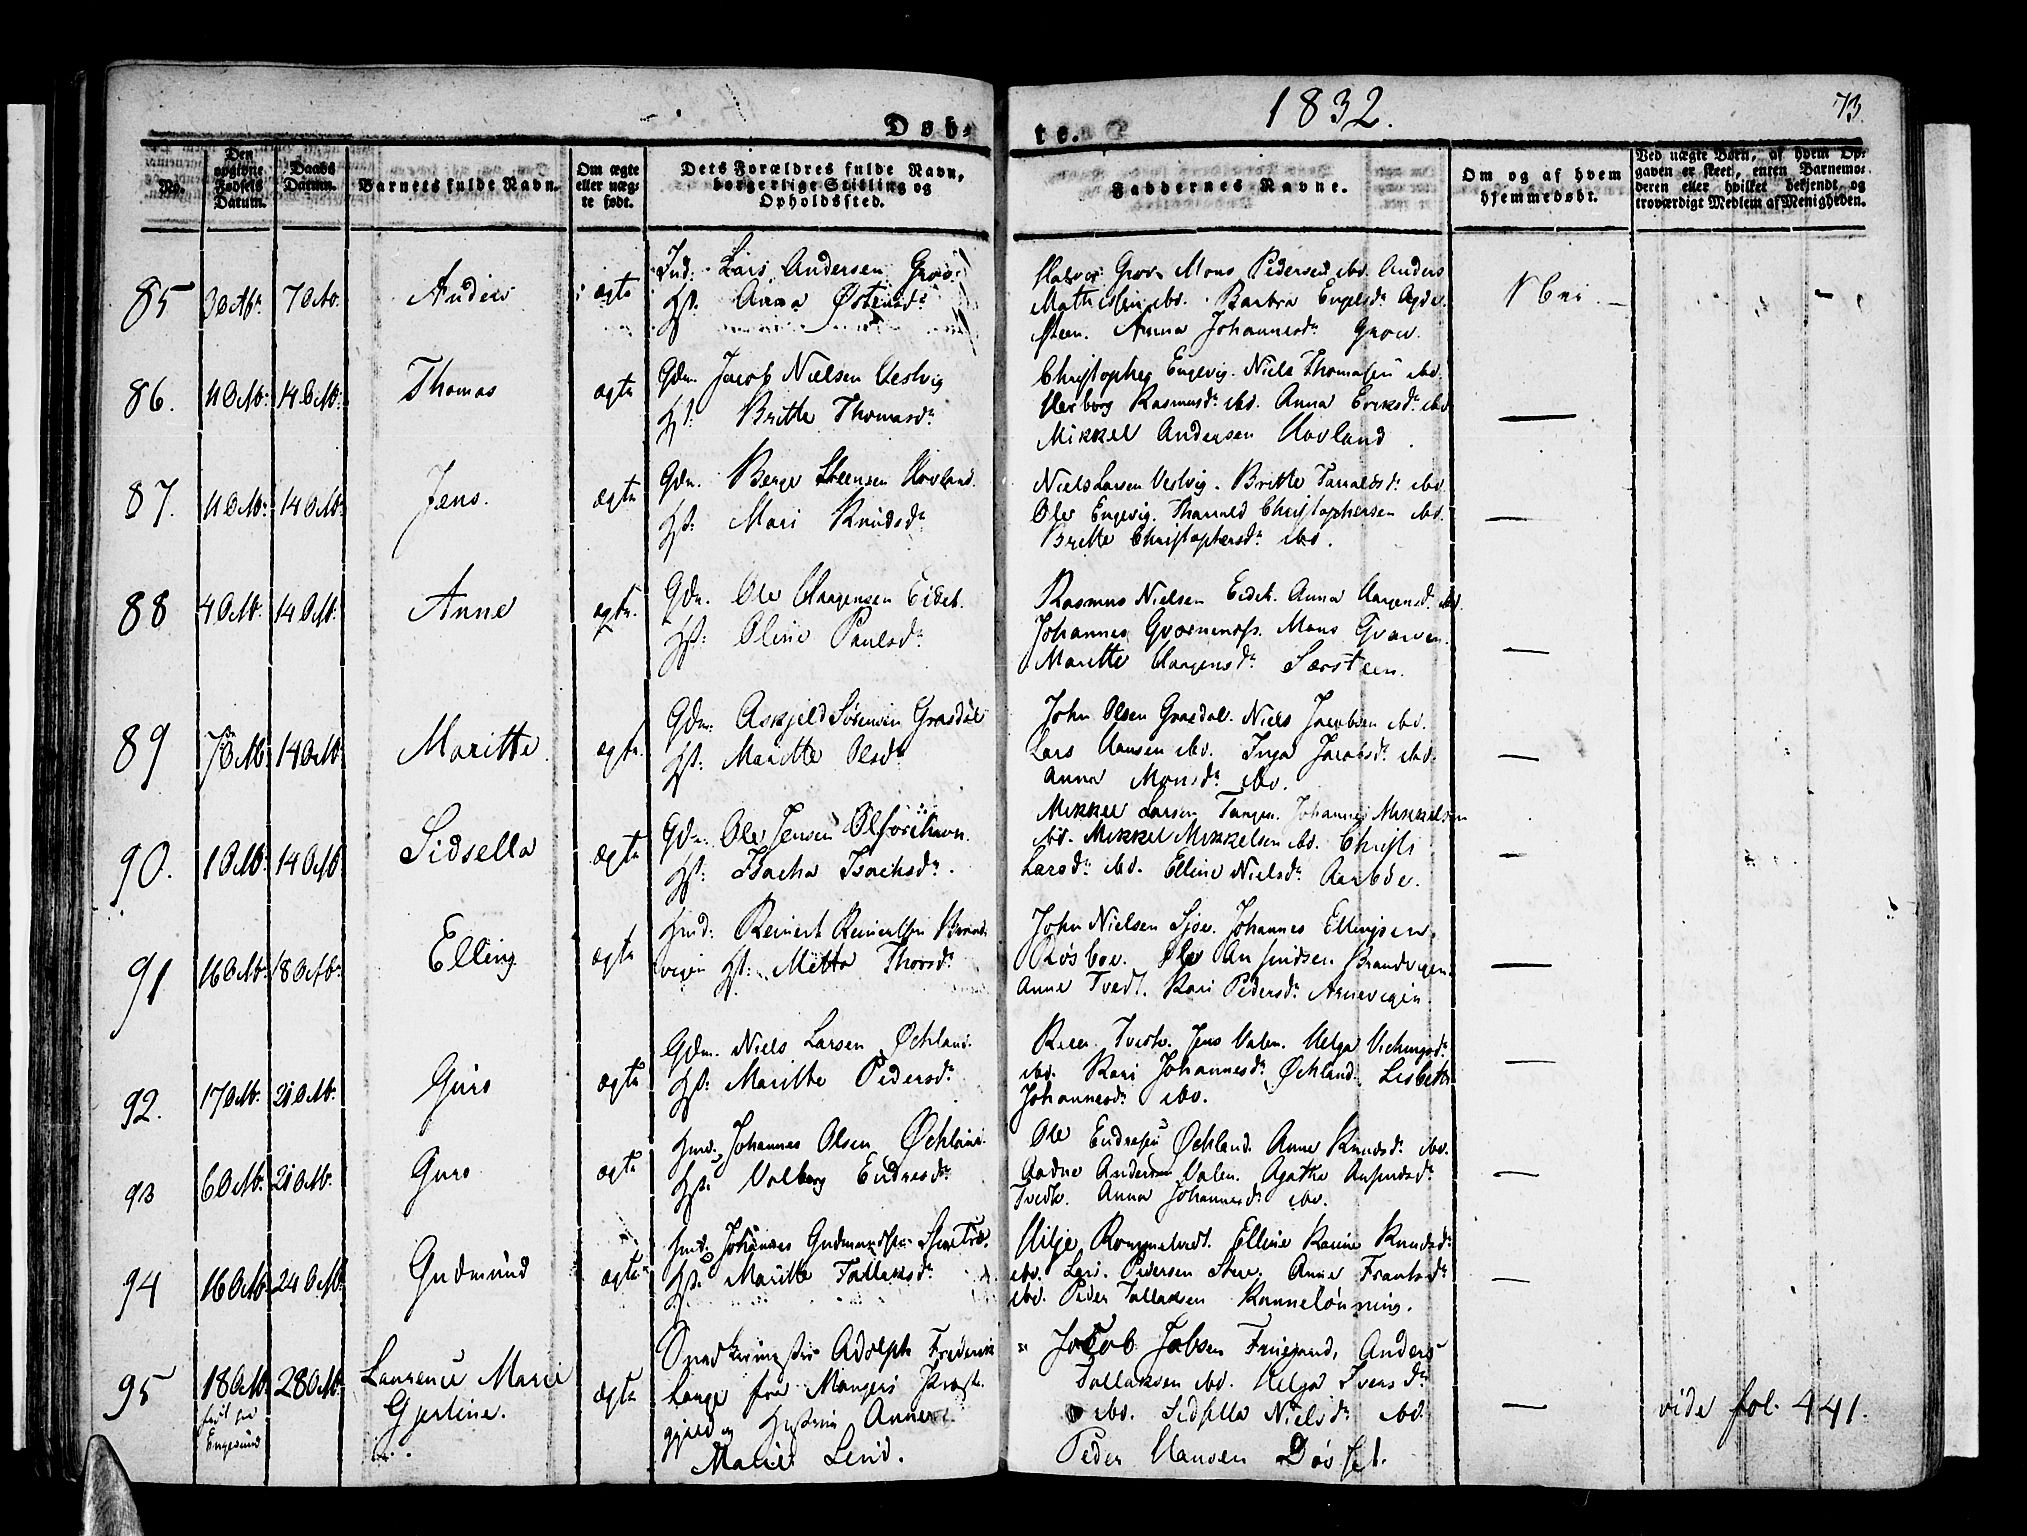 Døb-
te.
1832.
73.
No.
Den opgivne Fødsels Datum.
Daabs Datum.
Barnets fulde Navn.
Om ægte eller uægte født.
Dets Forældres fulde Navn, borgerlige Stilling og Opholdssted.
Faddernes Navne.
Om og af hvem hjemmedøbt.
Ved uægte Børn, af hvem Opgaven er skeet, enten Barnemoderen eller hvilket bekjendt og troværdigt Medlem af Menigheden.
85 3 Octbr: 7 Octb: Anders ægte
Ind: Lars Andersen Grov
Hst: Anna
Halvor Grov Mons Pedersen ibd. Anders
ibd. Barbra
Steen. Anna Johannesdr Grov.
86. 4 Octb: 14 Octb: Thomas ægte
Gdm. Jacob Nielsen Vestvig
Hst: Britte Thomasdr
Christopher Engevig. Niels Thomasen ibd.
Herborg Rasmusdr ibd. Anna Eriksdr ibd
Mikkel Andersen Hovland.
87. 4 Octb: 14 Octb: Jens. ægte
Gdm. Berge Steensen Hovland.
Hst: Mari Knudsdr
Niels Larsen Vestvig. Britte ibd.
Ole Engevig. Christophersen ibd.
Britte Christophersdr ibd.
88 4 Octb: 14 Octb: Anne ægte.
Gdm. Ole Haagensen Eidet.
Hst: Oline Paulsdr
Rasmus Nielsen Eidet. Anna Haagensdr. ibd.
Johannes Mons
Maritte Haagensdr Særsteen.
89 7 Octb: 14 Octb: Maritte ægte.
Gdm. Askjeld Sørensen Grasdal
Hst: Maritte Olsdr
John Olsen Grasdal. Niels Jacobsen ibd.
Lars Hansen ibd. Inga Jacobsdr ibd.
Anna Monsdr ibd.
90. 1 Octb: 14 Octb: Sidsella ægte
Gdm. Ole Jensen
Hst:
Mikkel Larsen Tangen. Johannes Mikkelsen
ibd. Mikkel Mikkelsen ibd. Christi
Larsdr ibd. Elline Nielsdr
91 16 Octb: 18 Octbr: Elling ægte
Hmd: Reinert Reinertsen Brand-
vigen Hst: Mette Thorsdr
John Nielsen Johannes Ellingsen
Ole Ansindsen Brandvigen.
Anne Tvedt. Kari Pedersdr Arnevigen
92. 17 Octb: 21 Octb: Guro ægte
Gdm. Niels Larsen Øchland.
Hst: Maritte Pedersdr
Tvedte. Jens Valen. Helga Vichingsdr
ibd. Kari Johannesdr Øchland. Lisbeth
Johannesdr ibd.
93 6 Octb: 21 Octb: Guro ægte
Hmd. Johannes Olsen Øchland.
Hst: Valborg Endresdr
Ole Endresen Øchland. Anne Knudsdr ibd.
Aadne Andersen Valen. Agatha Ansindsdr
Tvedte. Anna Johannesdr ibd.
94 16 Octb: 24 Octb: Gudmund ægte
Hmd: Johannes Gudmundsen
Hst: Maritte Tollaksdr
Hilje Rommetvedt. Elline Karine Knudsdr
ibd. Lars Pedersen Anne Frantsdr
ibd. Peder Tollaksen
95 18 Octb: 28 Octb: Laurence Marie
Gjertine. ægte
født paa
Engesund
Adolph Frederik
Lange fra Mangers Præste-
gjeld og Hustrue Anne
Marie Lind.
Jacob Jobsen Anders
Tollaksen ibd. Helga Iversdr
ibd. Sidsella Nielsdr ibd.
Peder Hansen
vide fol. 441.